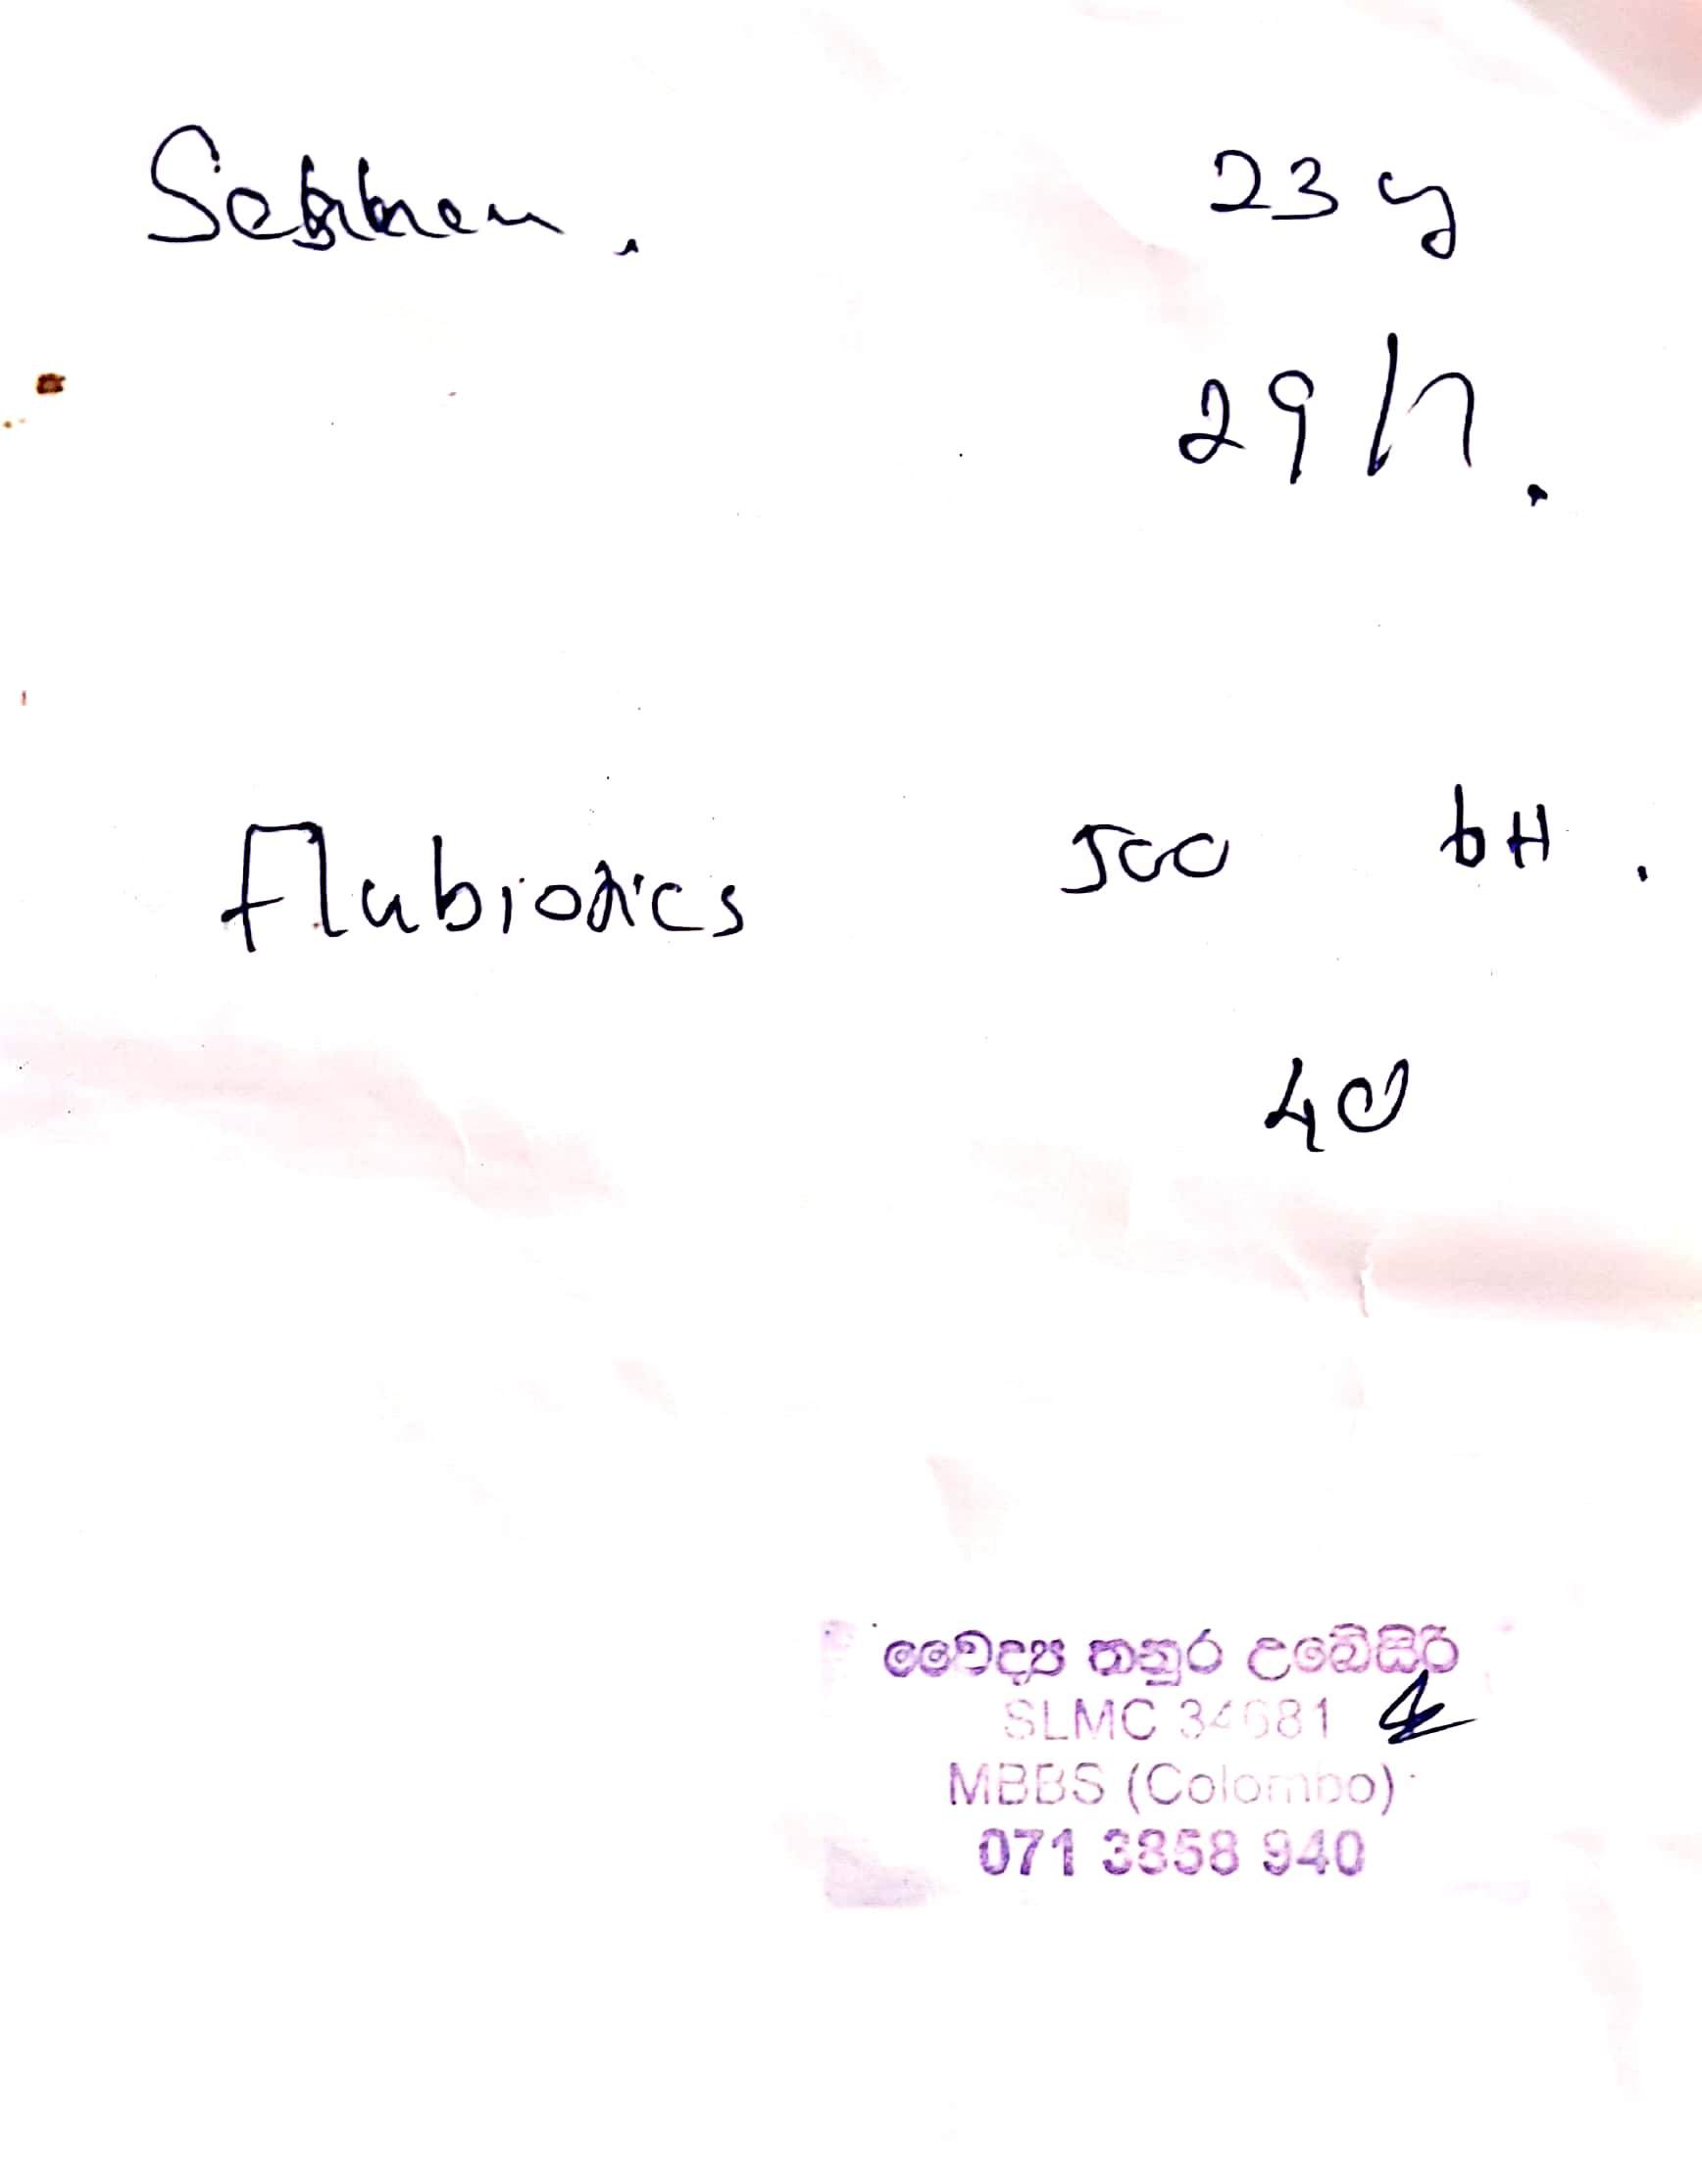 23 y
29 / n.
Flubiotics 500 6H.
4d
වෛද්‍ය තනුර උබේසිරි
SLMC 34681
MBBS (Colombo)
071 3858 940